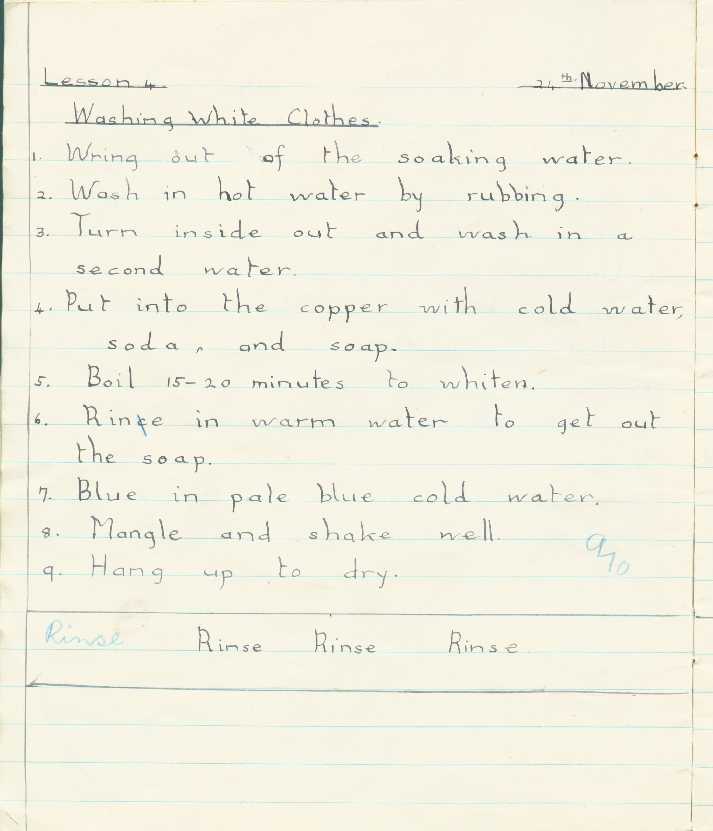 Lesson 4. 24th November.
Washing White Clothes.
1. Wring out of the soaking water.
2. Wash in hot water by rubbing.
3. Turn inside out and wash in a
second water.
4. Put into the copper with cold water,
soda, and soap.
5. Boil 15-20 minutes to whiten.
6. Rince in warm water to get out
the soap.
7. Blue in pale blue cold water.
8. Mangle and shake well.
9. Hang up to dry.
9/10
Rinse Rinse Rinse Rinse